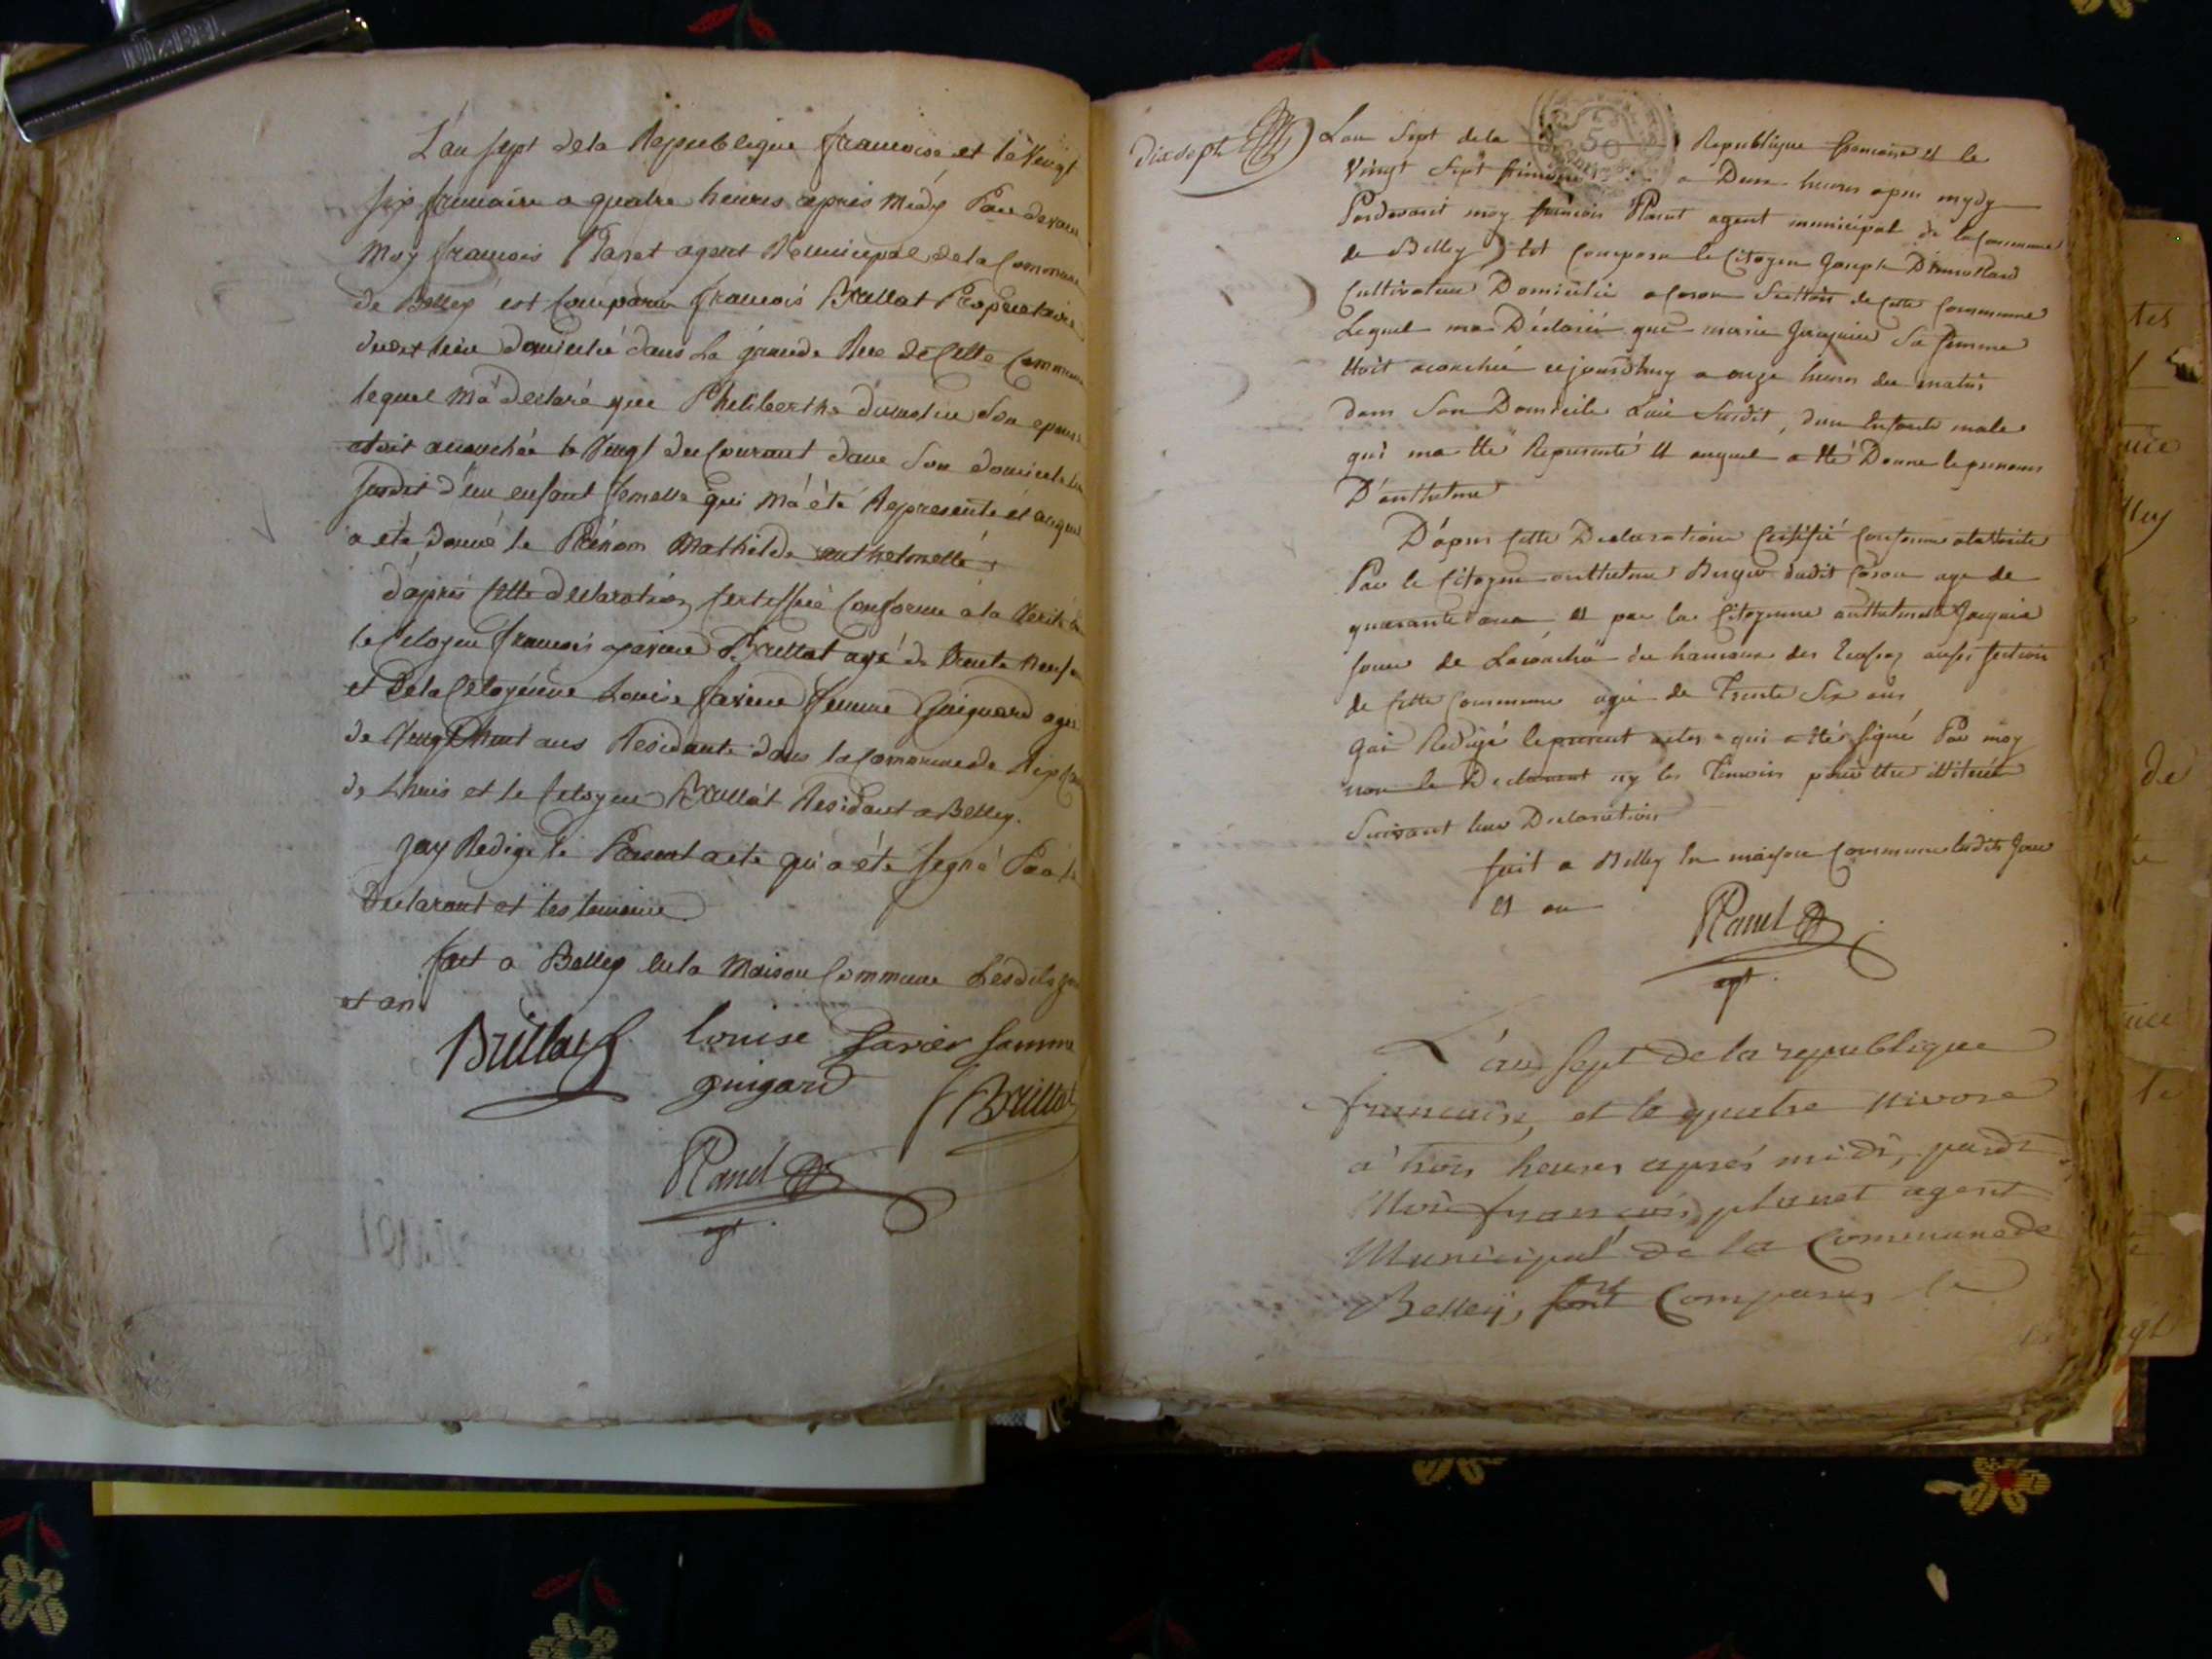 L'an sept de la Republique francoise et le Vingt
six frimaire a quatre heures apres Midy Par devant
Moy francois Planet agent Municipal de la Commune
de Belley est Comparu francois Brillat Propriétaire
dudit lieu domicilié dans La grande Rue de Cette Commune
lequel m'a declaré que Philiberthe dumolin Son epouse
etoit accouchée le Vingt du Courant dans Son domicile
susdit d'un enfant femelle qui m'a été Representé et auquel
a été donné le Prénom Mathilde anthelmette
d'apres Cette declaration Certiffiée Conforme a la Verité
le Citoyen francois xavier Brillat agé de trente
et De la Citoyenne Louise favier femme Guigard agée
de Vingt huit ans Residante dans la Commune de
de Lhuis et le Citoyen Brillat Residant a Belley.
Jay Redigé le Present acte qui a été signé Par le
Declarant et les temoins
fait a Belley En la Maison Commune Lesdits jour
et an
Brillat Louise favier famme
guigard f Brillat
Planet
agt.
dix sept
50
L'an Sept de la Republique francaise et le
Vingt Sept frimaire a Deux heures apres mydy
Pardevant moy francois Planet agent municipal de la Commune
de Belley Est Comparu le Citoyen Joseph Dumollard
Cultivateur Domicilié a Coron Section de Cette Commune
Lequel ma Déclaré que marie Sa femme
Etoit acouchée cejourdhuy a onze heures du matin
dans Son Domicile Lieu Susdit, dun Enfant male
qui ma Eté Representé Et auquel a Eté Donné le prenom
D'anthelme
D'apres Cette Declaration Certifié Conforme a la Verité
Par le Citoyen anthelme Berger dudit Coron agé de
quarante ans Et par la Citoyenne anthelmette
soeur de Lacouchée du hameau des aussi section
de Cette Commune agée de Trente Six ans
Jai Redigé le present acte qui a Eté signé Par moy
non le Declarant ny les Temoins pour Etre illiterés
Suivant leur Declaration
fait a Belley En maison Commune lesdits Jour
Et an
Planet
agt.
L'an sept de la republique
francaise, et le quatre nivose
à trois heures aprés midi, pardt
Moi françois planet agent
Municipal de la Commune de
Belley, sont Comparus le